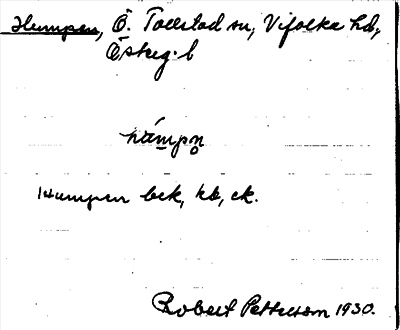 Humpen, Ö. Tollstad sn, Vifolka hd,
Östeg. l
hámpn̥
Humpen bek, hb, ek.
Robert Petterson 1930.